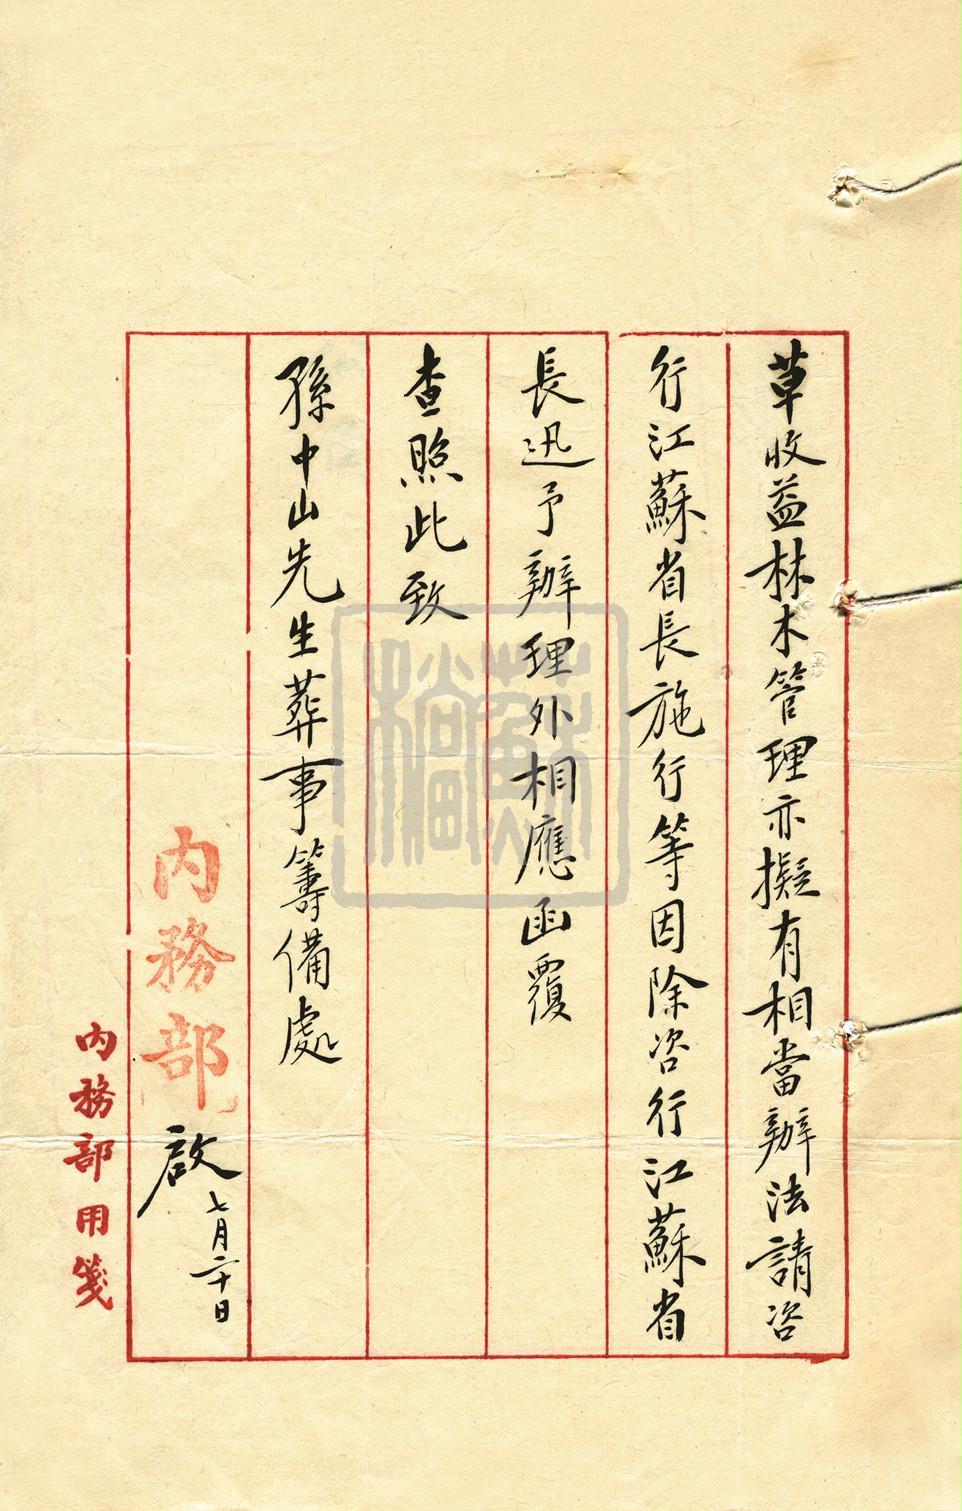 草收益林木管理亦擬有相當辦法請咨
行江蘇省長施行等因除咨行江蘇省
長迅予辦理外相應函覆
查照此致
孫中山先生葬事籌備處
內務部啟
七月二十日
內務部用箋